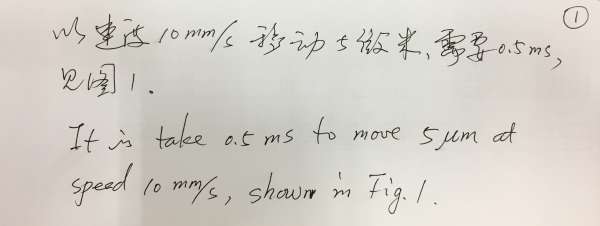 ①
以速度 10 mm/s 移动 5 微米、需要 0.5 ms,
见图 1.
It is take 0.5 ms to move 5 μm at
speed 10 mm/s, shown in Fig. 1.